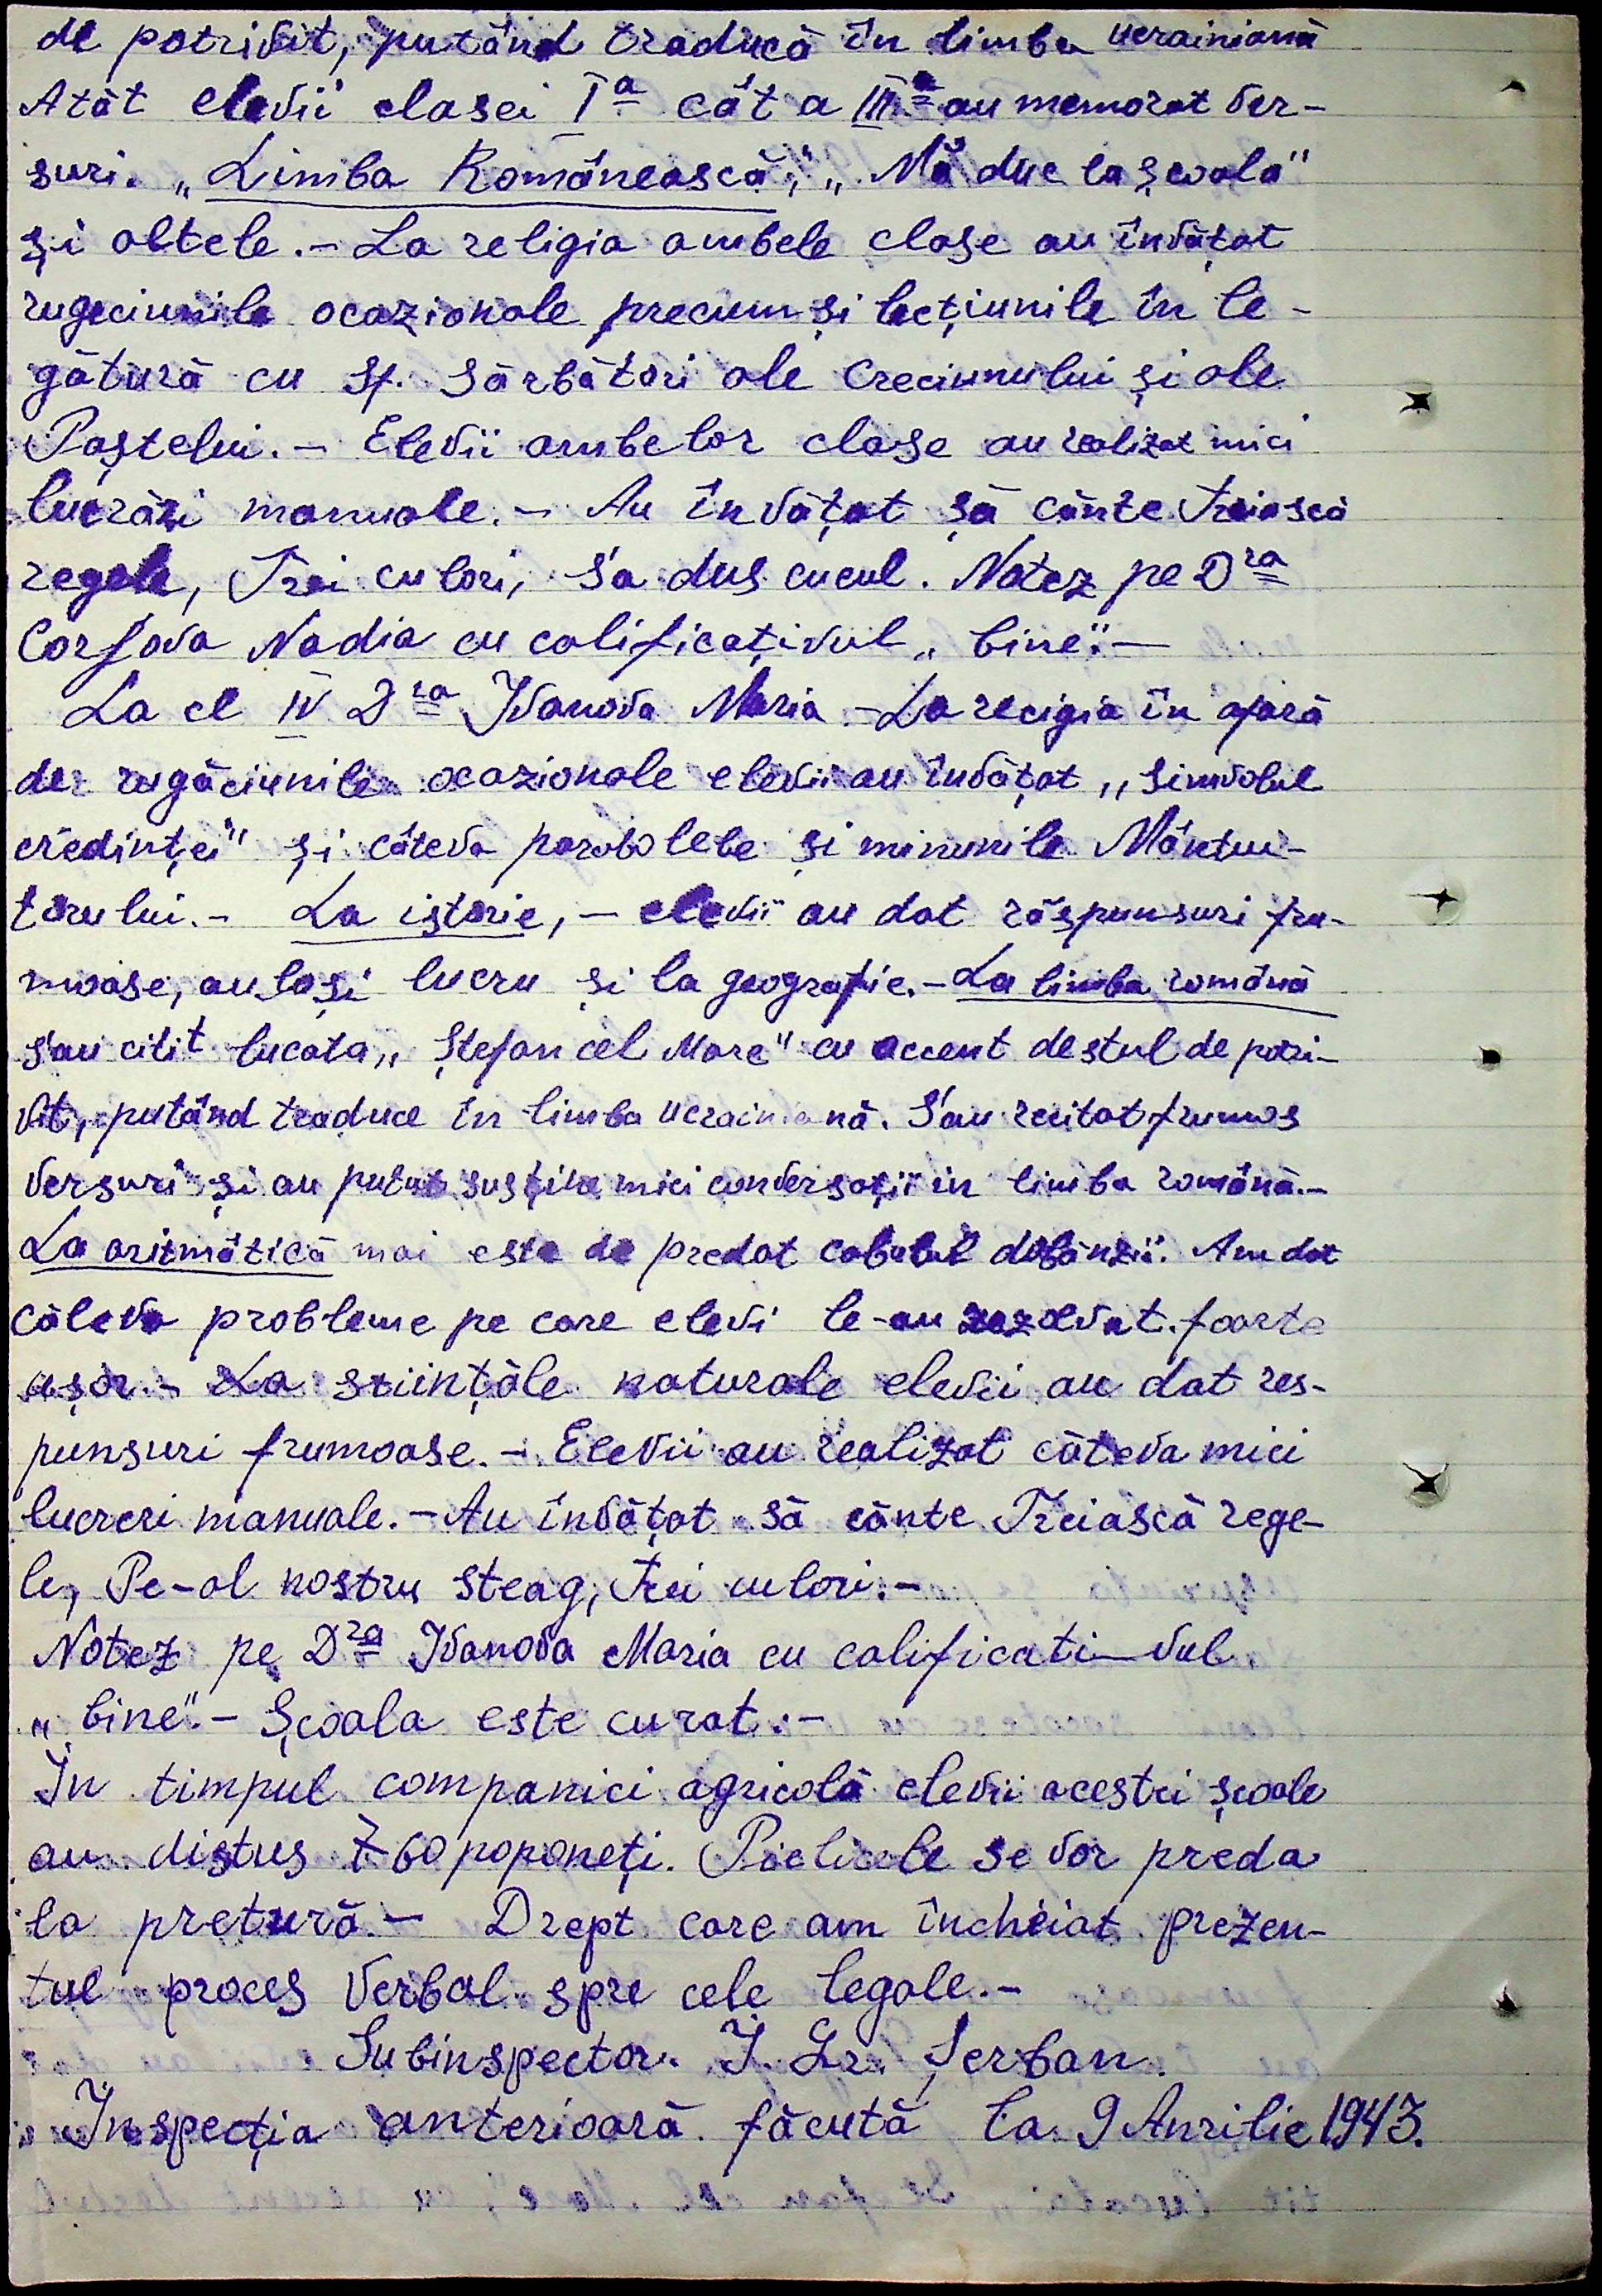 de potrivit, putând traducă în limba ucrainiană
Atât elevii clasei Iª cât a IIIª au memorat ver-
suri. „Limba Românească", „Mă duc la școală"
și altele.- La religia ambele clase au învățat
rugeciunile ocazionale precum și lecțiunile în le-
gătură cu Sf. Sărbători ale Creciunului și ale
Paștelui.- Elevii ambelor clase au realizat mici
lucrări manuale.- Au învățat să cânte Trăiască
regele, Trei culori, S'a dus cucul. Notez pe Dra
Corsova Nadia cu calificațivul „bine".-
La cl IV Dra Ivanova Maria.- La recigia în afară
de rugăciunile ocazionale elevii au învățat „simvolul
credinței" și câteva parabolele și minunile Mântui-
torului.- La istorie,- elevii au dat răspunsuri fru-
moase, au lași lucru și la geografie.- La limba română
s'au citit bucata „Ștefan cel Mare" cu accent destul de potri-
vit, putând traduce în limba ucrainiană. S'au recitat frumos
versuri și au putut susține mici conversații în limba română.-
La aritmătică mai este de predat calculul dobânzii. Am dat
câteva probleme pe care elevi le-au rezolvat foarte
ușor.- La științăle naturale elevii au dat res-
punsuri frumoase.- Elevii au realizat câteva mici
lucreri manuale.- Au învățat să cânte Treiască rege-
le, Pe-al nostru steag, Trei culori.-
Notez pe Dra Ivanova Maria cu calificati-vul
„bine".- Școala este curat.-
In timpul companici agricolă elevii acestei școale
au distus 760 poponeți. Pielicele se vor preda
la pretură.- Drept care am încheiat prezen-
tul proces verbal spre cele legale.-
Subinspector. I. Gr. Șerban.
Inspecția anterioară făcută la 9 Anrilie 1943.